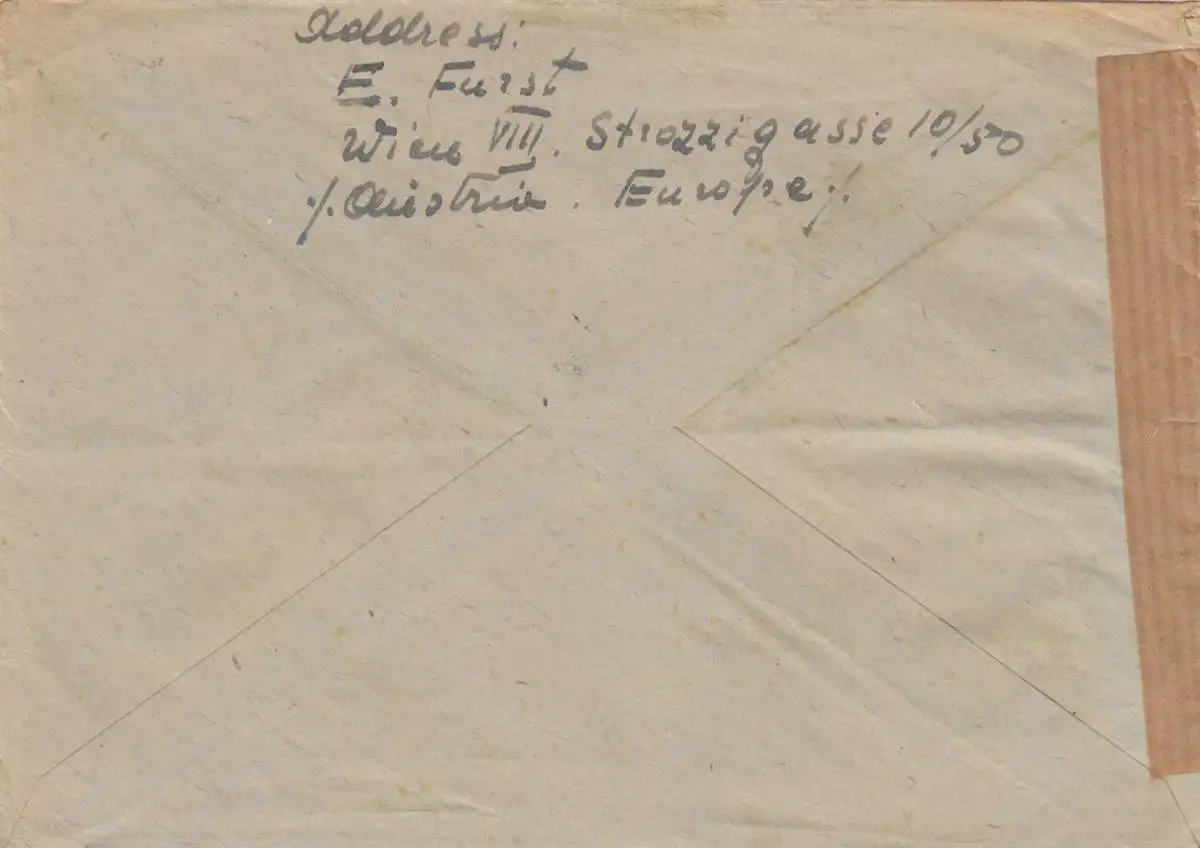 Address:
E. Furst
Wien VIII. Strozzigasse 10/50
./. Austria. Europe ./.